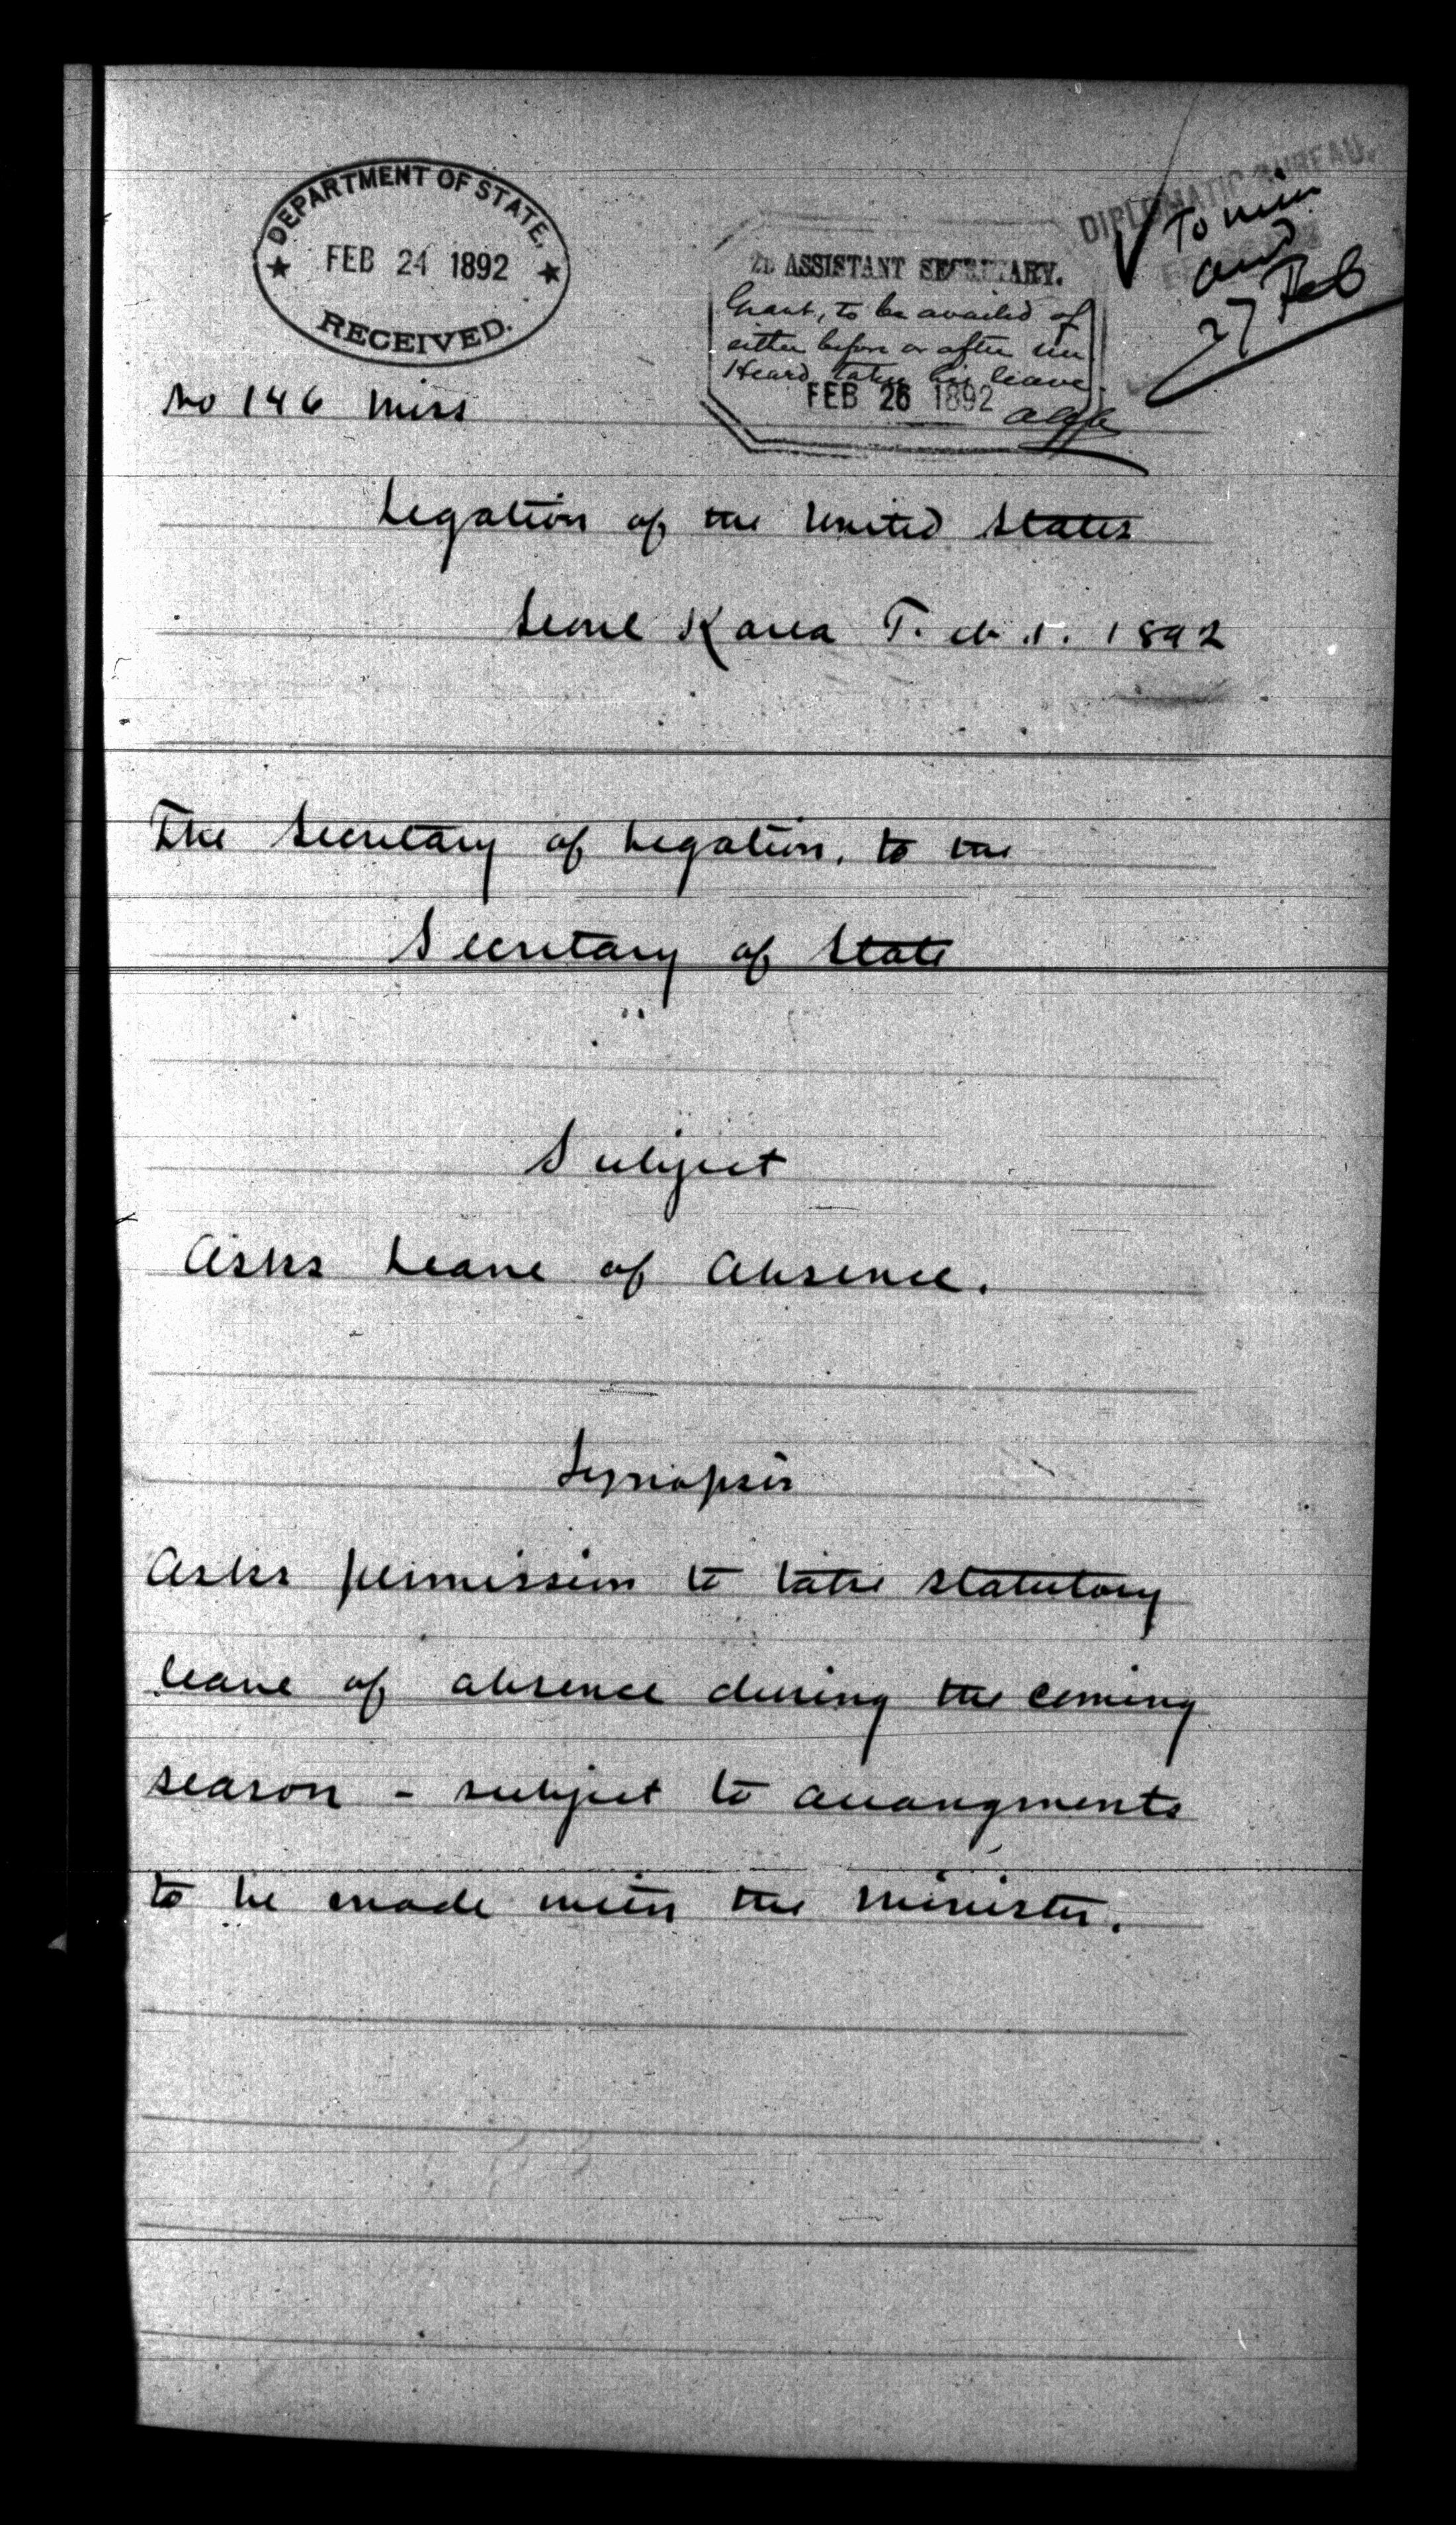 DEPARTMENT OF STATE,
FEB 24 1892
RECEIVED.
DIPLOMATIC BUREAU,
To him
and
27 Feb
2D ASSISTANT SECRETARY.
Grant, to be availed of
either before or after Mr
Heard takes his leave.
FEB 26 1892
No 146 Miss
Legation of the United States
Seoul Korea Feb. 1. 1892
The Secretary of Legation, to the
Secretary of State
Subject
Asks Leave of Absence.
Synopsis
Asks permission to take statutory
leave of absence during the coming
season - subject to arrangments
to be made with the Minister.